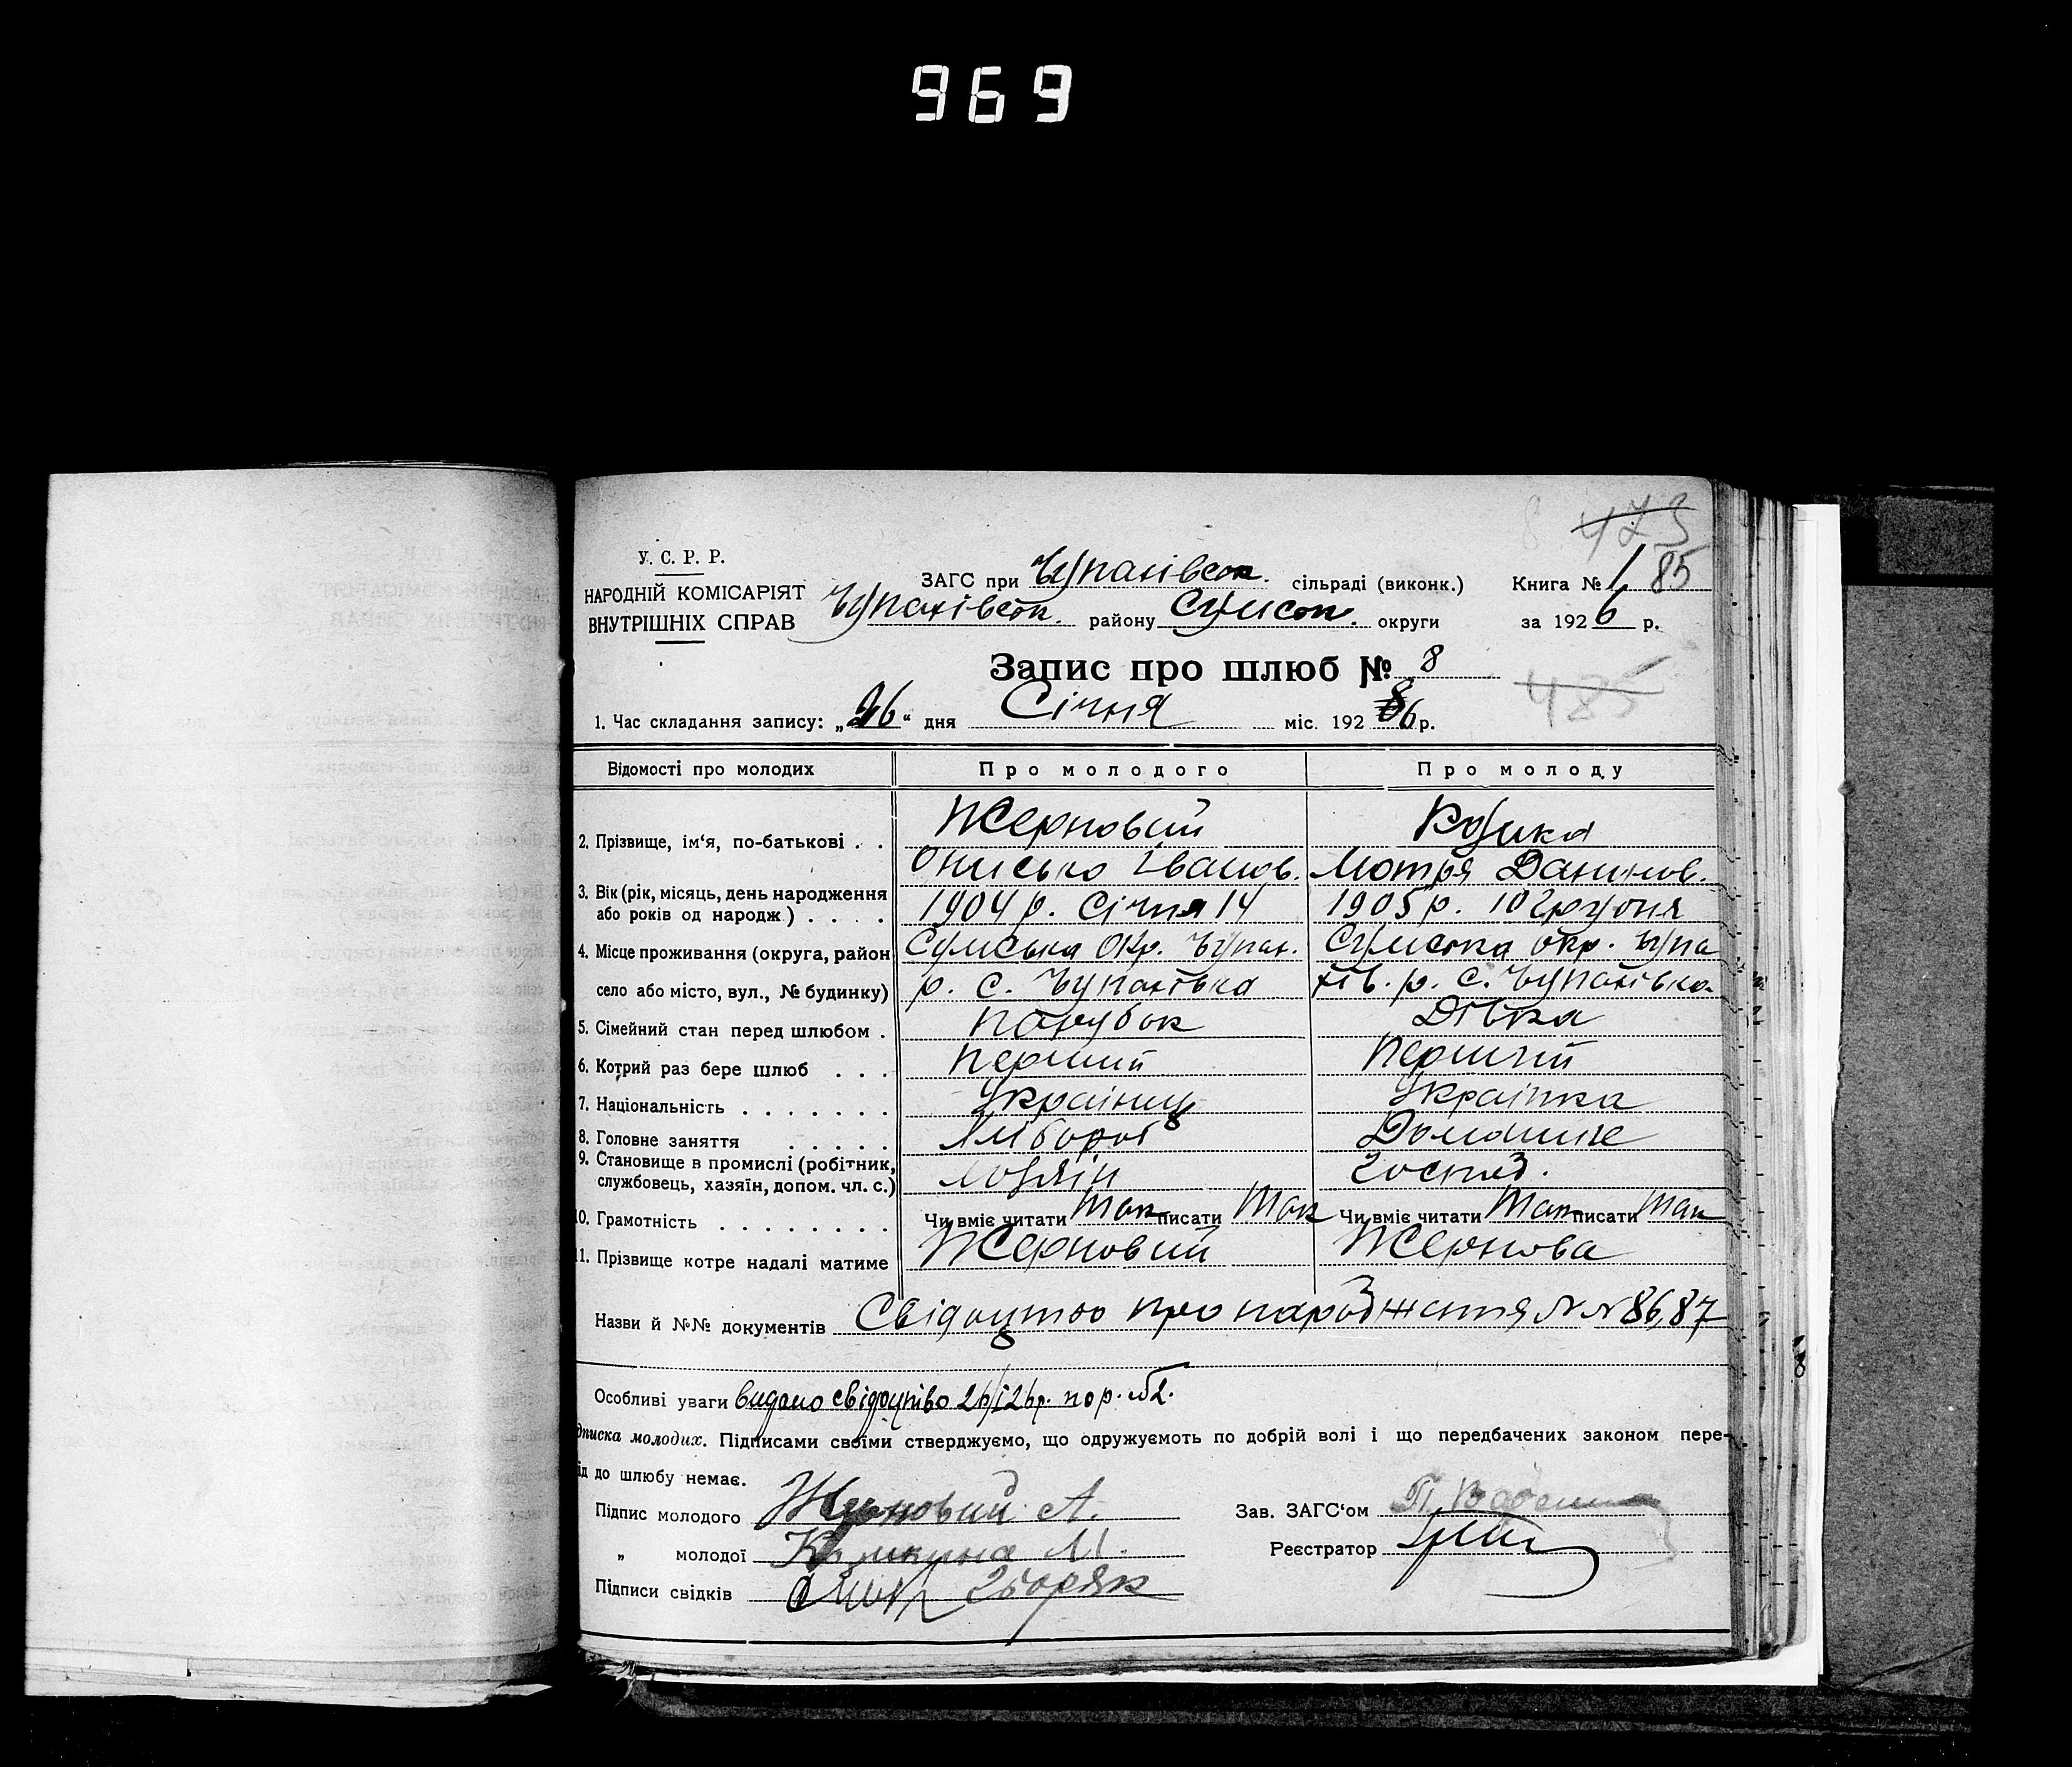 969
8 473
У. С. Р. Р.
НАРОДНІЙ КОМІСАРІЯТ
ВНУТРІШНІХ СПРАВ
ЗАГС при Чупахівськ. сільраді (виконк.) Книга № 1 85
Чупахівськ. району Сумськ. округи за 1926 р.
Запис про шлюб № 8
485
1. Час складання запису: „26“ дня Січня міс. 1926 р.
Відомості про молодих Про молодого Про молоду
2. Прізвище, ім‘я, по-батькові . . Жерновий
Онисько Іванов. Мотря Данилов.
3. Вік (рік, місяць, день народження або років од народж) . . . . 1904 р. Січня 14 1905 р. 10 Грудня
4. Місце проживання (округа, район Сумська Окр. Чупах. Сумська окр. Чупа
село або місто, вул., № будинку) р. с. Чупахівка хів. р. с. Чупахівка
5. Сімейний стан перед шлюбом . Парубок Дівка
6. Котрий раз бере шлюб . . . Перший Перший
7. Національність . . . . . . . Українець Українка
8. Головне заняття . . . . . Хлібороб Домашнє
9. Становище в промислі (робітник, службовець, хазяїн, допом. чл. с.) господ.
10. Грамотність . . . . . . . . Чи вміє читати Так писати Так Чи вміє читати Так писати Так
11. Прізвище котре надалі матиме Жерновий Жернова
Назви й №№ документів Свідоцтво про народження №№ 86,87
Особливі уваги видано свідоцтво 26/I 26р. по р. №2.
дписка молодих. Підписами своїми стверджуємо, що одружуємоть по добрій волі і що передбачених законом пере-
ід до шлюбу немає.
Підпис молодого Жерновий А. Зав. ЗАГС‘ом
„ молодої М. Реєстратор
Підписи свідків